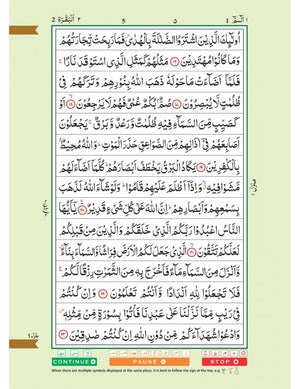 ٢ اَلْبَقَرَة 2 5 5 1 الٓمّٓ ١
اُولٰٓئِكَ الَّذِيْنَ اشْتَرَوُا الضَّلٰلَةَ بِالْهُدٰى فَمَا رَبِحَتْ تِّجَارَتُهُمْ
وَمَا كَانُوْا مُهْتَدِيْنَ ﴿١٦﴾ مَثَلُهُمْ كَمَثَلِ الَّذِى اسْتَوْقَدَ نَارًا
فَلَمَّآ اَضَآءَتْ مَا حَوْلَهٗ ذَهَبَ اللّٰهُ بِنُوْرِهِمْ وَتَرَكَهُمْ فِيْ
ظُلُمٰتٍ لَّا يُبْصِرُوْنَ ﴿١٧﴾ صُمٌّۢ بُكْمٌ عُمْيٌ فَهُمْ لَا يَرْجِعُوْنَ ﴿١٨﴾ اَوْ
كَصَيِّبٍ مِّنَ السَّمَآءِ فِيْهِ ظُلُمٰتٌ وَّرَعْدٌ وَّبَرْقٌ يَجْعَلُوْنَ
اَصَابِعَهُمْ فِيْٓ اٰذَانِهِمْ مِّنَ الصَّوَاعِقِ حَذَرَ الْمَوْتِ وَاللّٰهُ مُحِيْطٌۢ
بِالْكٰفِرِيْنَ ﴿١٩﴾ يَكَادُ الْبَرْقُ يَخْطَفُ اَبْصَارَهُمْ كُلَّمَآ اَضَآءَ لَهُمْ
مَّشَوْا فِيْهِ وَاِذَآ اَظْلَمَ عَلَيْهِمْ قَامُوْا وَلَوْ شَآءَ اللّٰهُ لَذَهَبَ
بِسَمْعِهِمْ وَاَبْصَارِهِمْ اِنَّ اللّٰهَ عَلٰى كُلِّ شَيْءٍ قَدِيْرٌ ﴿٢٠﴾ يٰٓاَيُّهَا
النَّاسُ اعْبُدُوْا رَبَّكُمُ الَّذِيْ خَلَقَكُمْ وَالَّذِيْنَ مِنْ قَبْلِكُمْ
لَعَلَّكُمْ تَتَّقُوْنَ ﴿٢١﴾ الَّذِيْ جَعَلَ لَكُمُ الْاَرْضَ فِرَاشًا وَّالسَّمَآءَ بِنَآءً
وَّاَنْزَلَ مِنَ السَّمَآءِ مَآءً فَاَخْرَجَ بِهٖ مِنَ الثَّمَرٰتِ رِزْقًا لَّكُمْ
فَلَا تَجْعَلُوْا لِلّٰهِ اَنْدَادًا وَّاَنْتُمْ تَعْلَمُوْنَ ﴿٢٢﴾ وَاِنْ كُنْتُمْ
فِيْ رَيْبٍ مِّمَّا نَزَّلْنَا عَلٰى عَبْدِنَا فَاْتُوْا بِسُوْرَةٍ مِّنْ مِّثْلِهٖ
وَادْعُوْا شُهَدَآءَكُمْ مِّنْ دُوْنِ اللّٰهِ اِنْ كُنْتُمْ صٰدِقِيْنَ ﴿٢٣﴾
CONTINUE PAUSE STOP
When there are multiple symbols displayed at the same place, it is best to follow the sign at the top. e.g.